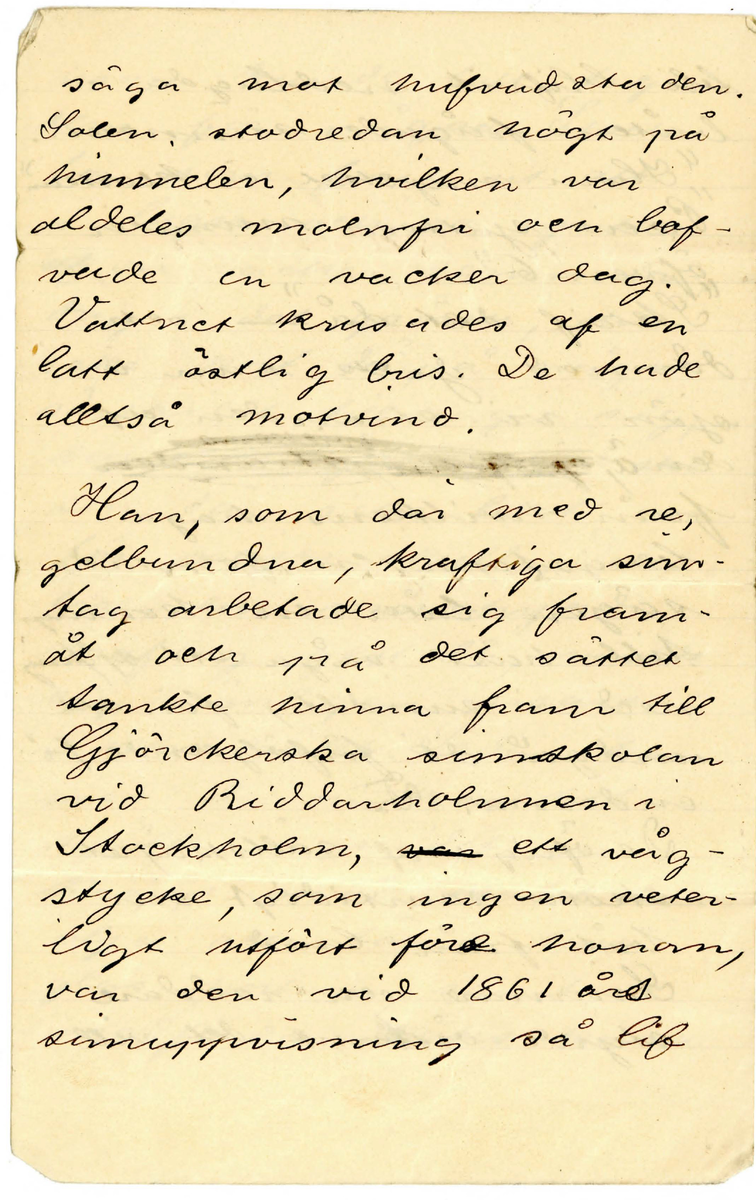 säga mot hufvudstaden.
Solen stod redan högt på
himmelen, hvilken var
aldeles molnfri och lof-
vade en vacker dag.
Vattnet krusades af en
lätt östlig bris. De hade
alltså motvind.
Han, som där med re,
gelbundna, kraftiga sim-
tag arbetade sig fram-
åt och på det sättet
tänkte hinna fram till
Gjörckerska simskolan
vid Riddarholmen i
Stockholm, var ett våg-
stycke, som ingen veter-
ligt utfört före honom,
var den vid 1861 års
simuppvisning så lif